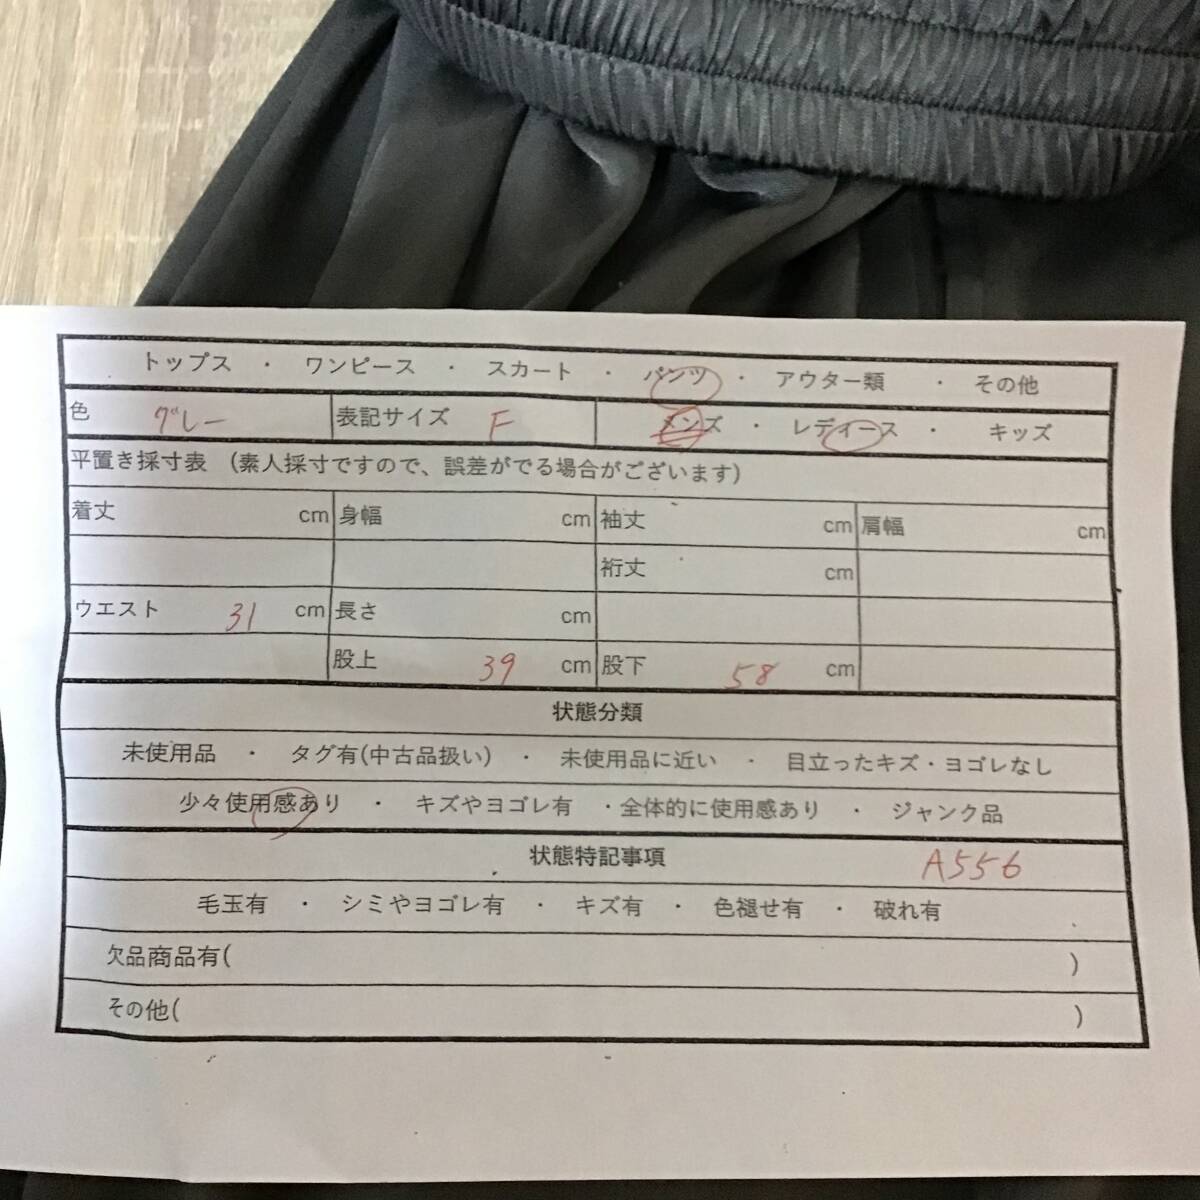 トップス ・ ワンピース ・ スカート ・ パンツ ・ アウター類 ・ その他
色 グレー 表記サイズ F メンズ ・ レディース ・ キッズ
平置き採寸表 (素人採寸ですので、誤差がでる場合がございます)
着丈 cm 身幅 cm 袖丈 cm 肩幅 cm
裄丈 cm
ウエスト 31 cm 長さ cm
股上 39 cm 股下 58 cm
状態分類
未使用品 ・ タグ有(中古品扱い) ・ 未使用品に近い ・ 目立ったキズ・ヨゴレなし
少々使用感あり ・ キズやヨゴレ有 ・全体的に使用感あり ・ ジャンク品
状態特記事項 A556
毛玉有 ・ シミやヨゴレ有 ・ キズ有 ・ 色褪せ有 ・ 破れ有
欠品商品有( )
その他( )